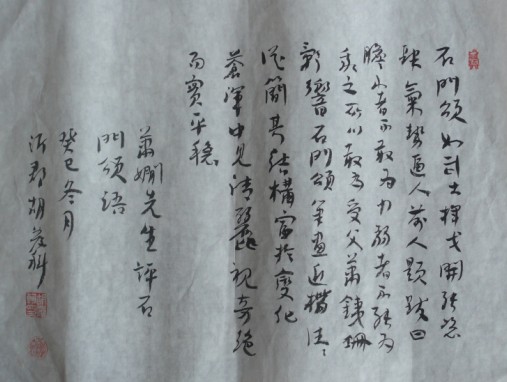 石門頌如武士揮戈開張恣
肆氣勢逼人前人題跋曰
膽小者不敢為力弱者不能為
我之所以敢為受父蕭銕珊
影響石門頌筆畫近楷法、
從簡其結構富於變化
蒼渾中見清麗視奇絕
而實平穩
蕭嫻先生評石
門頌語
癸巳冬月
沂郡胡